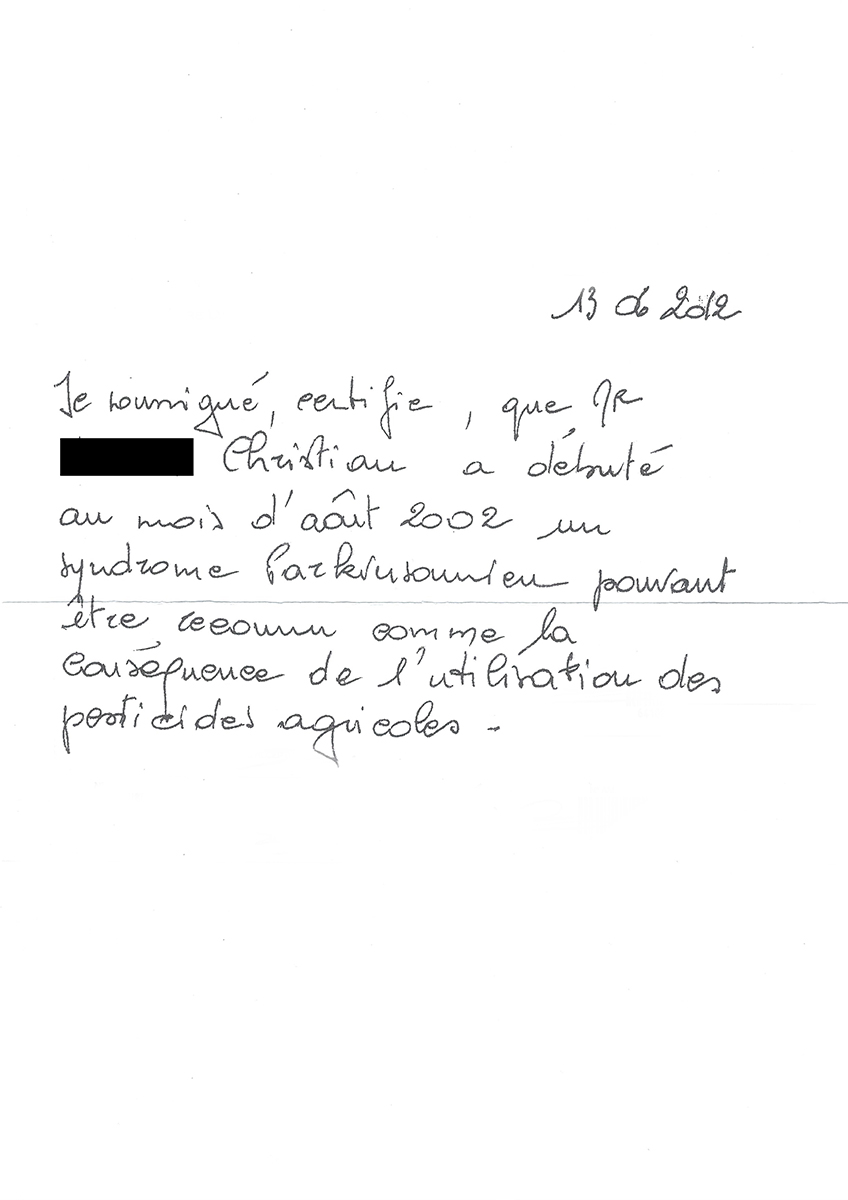 13 06 2012
Je soussigné, certifie, que MR
Christian a débuté
au mois d'août 2002 un
syndrome Parkinsonnien pouvant
être reconnu comme la
conséquence de l'utilisation des
pesticides agricoles -